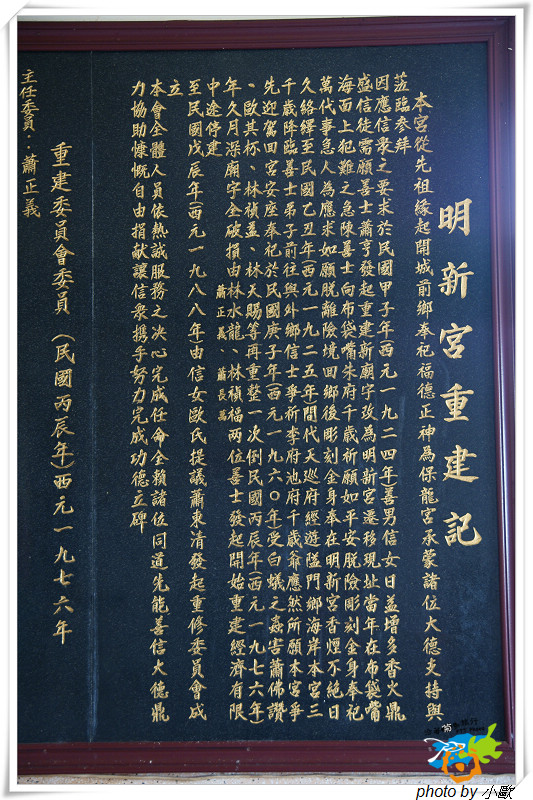 明新宮重建記
本宮從先祖緣起開城前鄉奉祀福德正神為保龍宮承蒙諸位大德支持與
蒞臨參拜
因應信眾之要求於民國甲子年(西元一九二四年)善男信女日益增多香火鼎
盛信徒需願善士蕭亨發起重建新廟字改為明新宮遷移現址當年在布袋嘴
海面上犯難之急陳善士向布袋嘴朱府千歲祈願如平安脫險彫刻金身奉祀
萬代事急人為應求如願脫離險境回鄉後彫刻金身奉在明新宮香煙不絕日
久絡繹至民國乙丑年(西元一九二五年)間代天巡府經遊隘門鄉海岸本宮三
千歲降臨善士弟子前往與外鄉信士爭祈李府池府千歲爺應然所願本宮爭
先迎駕回宮安座奉祀於民國庚子年(西元一九六０年)受白蟻之蟲害蕭佛讚
、歐其杯、林禎蓋、林天賜等再重整一次倒民國丙辰年(西元一九七六年)
年久月深廟宇全破損由林水龍、林禎福兩位善士發起開始重建經濟有限
蕭正義、蕭長萬
中途停建
至民國戊辰年(西元一九八八年)由信女歐氏提議蕭東清發起重修委員會成
立
本會全體人員依熱誠服務之決心完成任侖全賴諸位同道先能善信大德鼎
力協助慷慨自由捐獻讓信眾携手努力完成功德立碑
重建委員會委員 (民國丙辰年)西元一九七六年
主任委員．蕭正義
photo by 小歐